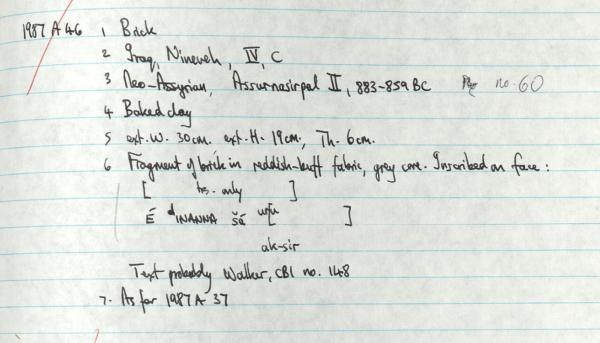 1987 A 46 1 Brick
2 Iraq, Nineveh, IV, C
3 Neo-Assyrian, Assurnasirpal II, 883-859 BC no. 60
4 Baked clay
5 ext. W. 30cm. ext. H. 19cm, Th. 6cm.
6 Fragment of brick in reddish-buff fabric, grey core. Inscribed on face:
[ trs. only ]
É dINANNA šá uru[ ]
ak-sir
Text probably Walker, CBI no. 148
7. As for 1987 A 37